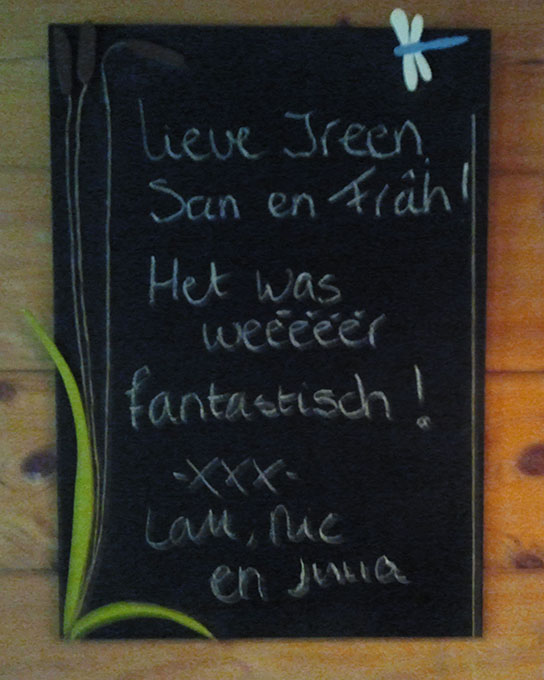 Lieve Ireen,
San en Frâh!
Het was
weëëëër
fantastisch!
-XXX-
Lau, Nic
en Julia